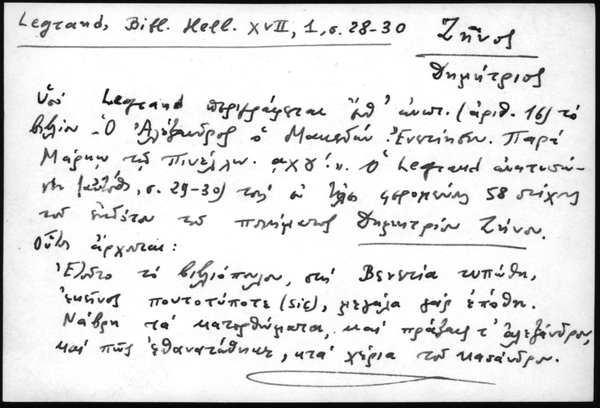 Legrand, Bibl. Hell. XVII, 1, σ. 28-30
Ζῆνος
Δημήτριος
Ὑπὸ Legrand περιγράφεται ὑπ' ἀριθ. (ἀριθ. 16) τὸ
βιβλίον· Ὁ Ἀλέξανδρος ὁ Μακεδών. Ἐνετίησιν. Παρὰ
Μάρκῳ τῷ Πινέλλῳ. ͵αχγ΄. Ὁ Legrand ἀνατυπώ-
νει (αὐτόθι, σ. 29-30) τοὺς ἐν τέλει φερομένους 58 στίχους
τοῦ ἐκδότου τοῦ ποιήματος Δημητρίου Ζήνου.
Οὗτοι ἄρχονται:
Ἐτοῦτο τὸ βιβλιόπουλον, στὴ Βενετία τυπώθη,
ἐκεῖνος πουτοτύπστε (sic), μεγάλα γὰρ ἐπόθη.
Νάβρῃ τὰ κατορθώματα, καὶ πράξεις τ' ἀλεξάνδρου,
καὶ πῶς ἐθανατώθηκε, 'κτὰ χέρια τοῦ κασάνδρου.